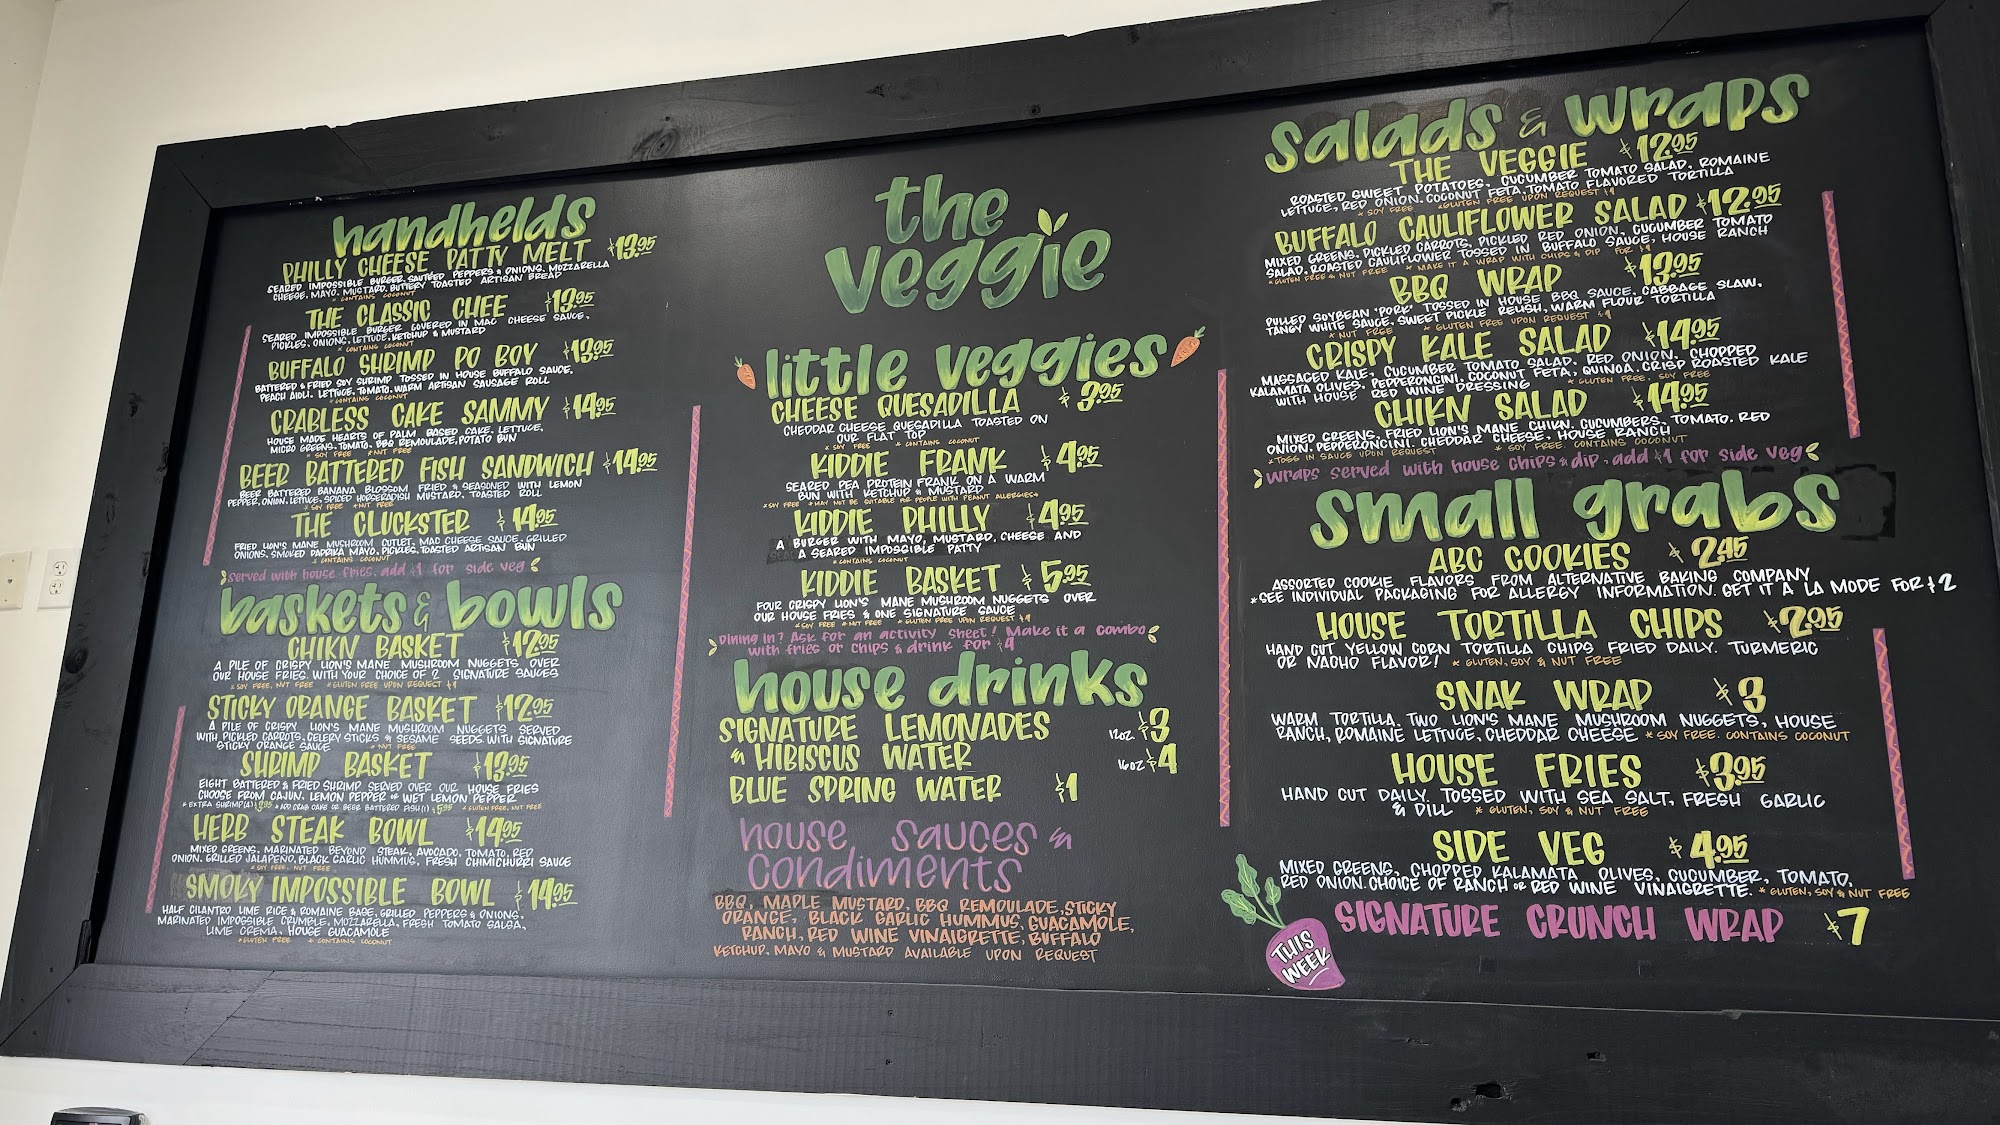 handhelds
PHILLY CHEESE PATTY MELT $13.95
SEARED IMPOSSIBLE BURGER, SAUTEED PEPPERS & ONIONS, MOZZARELLA
CHEESE, MAYO, MUSTARD, BUTTERY TOASTED ARTISAN BREAD
* CONTAINS COCONUT
THE CLASSIC CHEE $13.95
SEARED IMPOSSIBLE BURGER COVERED IN MAC CHEESE SAUCE,
PICKLES, ONIONS, LETTUCE, KETCHUP & MUSTARD
* CONTAINS COCONUT
BUFFALO SHRIMP PO BOY $13.95
BATTERED & FRIED SOY SHRIMP TOSSED IN HOUSE BUFFALO SAUCE,
PEACH AIOLI, LETTUCE, TOMATO, WARM ARTISAN SAUSAGE ROLL
* CONTAINS COCONUT
CRABLESS CAKE SAMMY $14.95
HOUSE MADE HEARTS OF PALM BASED CAKE, LETTUCE,
MICRO GREENS, TOMATO, BBQ REMOULADE, POTATO BUN
* SOY FREE * NUT FREE
BEER BATTERED FISH SANDWICH $14.95
BEER BATTERED BANANA BLOSSOM FRIED & SEASONED WITH LEMON
PEPPER, ONION, LETTUCE, SPICED HORSERADISH MUSTARD, TOASTED ROLL
* SOY FREE * NUT FREE
THE CLUCKSTER $14.95
FRIED LION'S MANE MUSHROOM CUTLET, MAC CHEESE SAUCE, GRILLED
ONIONS, SMOKED PAPRIKA MAYO, PICKLES, TOASTED ARTISAN BUN
* CONTAINS COCONUT
served with house fries, add $1 for side veg
baskets & bowls
CHIKN BASKET $12.95
A PILE OF CRISPY LION'S MANE MUSHROOM NUGGETS OVER
OUR HOUSE FRIES. WITH YOUR CHOICE OF 2 SIGNATURE SAUCES
* SOY FREE, NUT FREE * GLUTEN FREE UPON REQUEST $1
STICKY ORANGE BASKET $12.95
A PILE OF CRISPY LION'S MANE MUSHROOM NUGGETS SERVED
WITH PICKLED CARROTS, CELERY STICKS & SESAME SEEDS WITH SIGNATURE
STICKY ORANGE SAUCE * NUT FREE
SHRIMP BASKET $13.95
EIGHT BATTERED & FRIED SHRIMP SERVED OVER OUR HOUSE FRIES
CHOOSE FROM CAJUN, LEMON PEPPER OR WET LEMON PEPPER
* EXTRA SHRIMP(4) $3.95 * ADD CRAB CAKE OR BEER BATTERED FISH(1) $5.95 * GLUTEN FREE, NUT FREE
HERB STEAK BOWL $14.95
MIXED GREENS, MARINATED BEYOND STEAK, AVOCADO, TOMATO, RED
ONION, GRILLED JALAPEÑO, BLACK GARLIC HUMMUS, FRESH CHIMICHURRI SAUCE
* SOY FREE, NUT FREE
SMOKY IMPOSSIBLE BOWL $14.95
HALF CILANTRO LIME RICE & ROMAINE BASE, GRILLED PEPPERS & ONIONS,
MARINATED IMPOSSIBLE CRUMBLE, MOZZARELLA, FRESH TOMATO SALSA,
LIME CREMA, HOUSE GUACAMOLE
* GLUTEN FREE * CONTAINS COCONUT
the
veggie
little veggies
CHEESE QUESADILLA $3.95
CHEDDAR CHEESE QUESADILLA TOASTED ON
OUR FLAT TOP
* SOY FREE * CONTAINS COCONUT
KIDDIE FRANK $4.95
SEARED PEA PROTEIN FRANK ON A WARM
BUN WITH KETCHUP & MUSTARD
* SOY FREE * MAY NOT BE SUITABLE FOR PEOPLE WITH PEANUT ALLERGIES *
KIDDIE PHILLY $4.95
A BURGER WITH MAYO, MUSTARD, CHEESE AND
A SEARED IMPOSSIBLE PATTY
* CONTAINS COCONUT
KIDDIE BASKET $5.95
FOUR CRISPY LION'S MANE MUSHROOM NUGGETS OVER
OUR HOUSE FRIES & ONE SIGNATURE SAUCE
* SOY FREE * NUT FREE * GLUTEN FREE UPON REQUEST $1
Dining in? Ask for an activity sheet! Make it a combo
with fries or chips & drink for $4
house drinks
SIGNATURE LEMONADES 12oz $3
& HIBISCUS WATER 16oz $4
BLUE SPRING WATER $1
house sauces &
condiments
BBQ, MAPLE MUSTARD, BBQ REMOULADE, STICKY
ORANGE, BLACK GARLIC HUMMUS, GUACAMOLE,
RANCH, RED WINE VINAIGRETTE, BUFFALO
KETCHUP, MAYO & MUSTARD AVAILABLE UPON REQUEST
salads & wraps
THE VEGGIE $12.95
ROASTED SWEET POTATOES, CUCUMBER TOMATO SALAD, ROMAINE
LETTUCE, RED ONION, COCONUT FETA, TOMATO FLAVORED TORTILLA
* SOY FREE * GLUTEN FREE UPON REQUEST $1
BUFFALO CAULIFLOWER SALAD $12.95
MIXED GREENS, PICKLED CARROTS, PICKLED RED ONION, CUCUMBER TOMATO
SALAD, ROASTED CAULIFLOWER TOSSED IN BUFFALO SAUCE, HOUSE RANCH
* GLUTEN FREE & NUT FREE * MAKE IT A WRAP WITH CHIPS & DIP FOR $1
BBQ WRAP $13.95
PULLED SOYBEAN "PORK" TOSSED IN HOUSE BBQ SAUCE, CABBAGE SLAW,
TANGY WHITE SAUCE, SWEET PICKLE RELISH, WARM FLOUR TORTILLA
* NUT FREE * GLUTEN FREE UPON REQUEST $1
CRISPY KALE SALAD $14.95
MASSAGED KALE, CUCUMBER TOMATO SALAD, RED ONION, CHOPPED
KALAMATA OLIVES, PEPPERONCINI, COCONUT FETA, QUINOA, CRISP ROASTED KALE
WITH HOUSE RED WINE DRESSING * GLUTEN FREE, SOY FREE
CHIKN SALAD $14.95
MIXED GREENS, FRIED LION'S MANE CHIKN, CUCUMBERS, TOMATO, RED
ONION, PEPPERONCINI, CHEDDAR CHEESE, HOUSE RANCH
* TOSS IN SAUCE UPON REQUEST * SOY FREE, CONTAINS COCONUT
wraps served with house chips & dip, add $1 for side veg
small grabs
ABC COOKIES $2.45
ASSORTED COOKIE FLAVORS FROM ALTERNATIVE BAKING COMPANY
*SEE INDIVIDUAL PACKAGING FOR ALLERGY INFORMATION. GET IT A LA MODE FOR $2
HOUSE TORTILLA CHIPS $2.95
HAND CUT YELLOW CORN TORTILLA CHIPS FRIED DAILY. TURMERIC
OR NACHO FLAVOR! * GLUTEN, SOY & NUT FREE
SNAK WRAP $3
WARM TORTILLA, TWO LION'S MANE MUSHROOM NUGGETS, HOUSE
RANCH, ROMAINE LETTUCE, CHEDDAR CHEESE * SOY FREE. CONTAINS COCONUT
HOUSE FRIES $3.95
HAND CUT DAILY, TOSSED WITH SEA SALT, FRESH GARLIC
& DILL * GLUTEN, SOY & NUT FREE
SIDE VEG $4.95
MIXED GREENS, CHOPPED KALAMATA OLIVES, CUCUMBER, TOMATO,
RED ONION. CHOICE OF RANCH OR RED WINE VINAIGRETTE. * GLUTEN, SOY & NUT FREE
SIGNATURE CRUNCH WRAP $7
THIS
WEEK